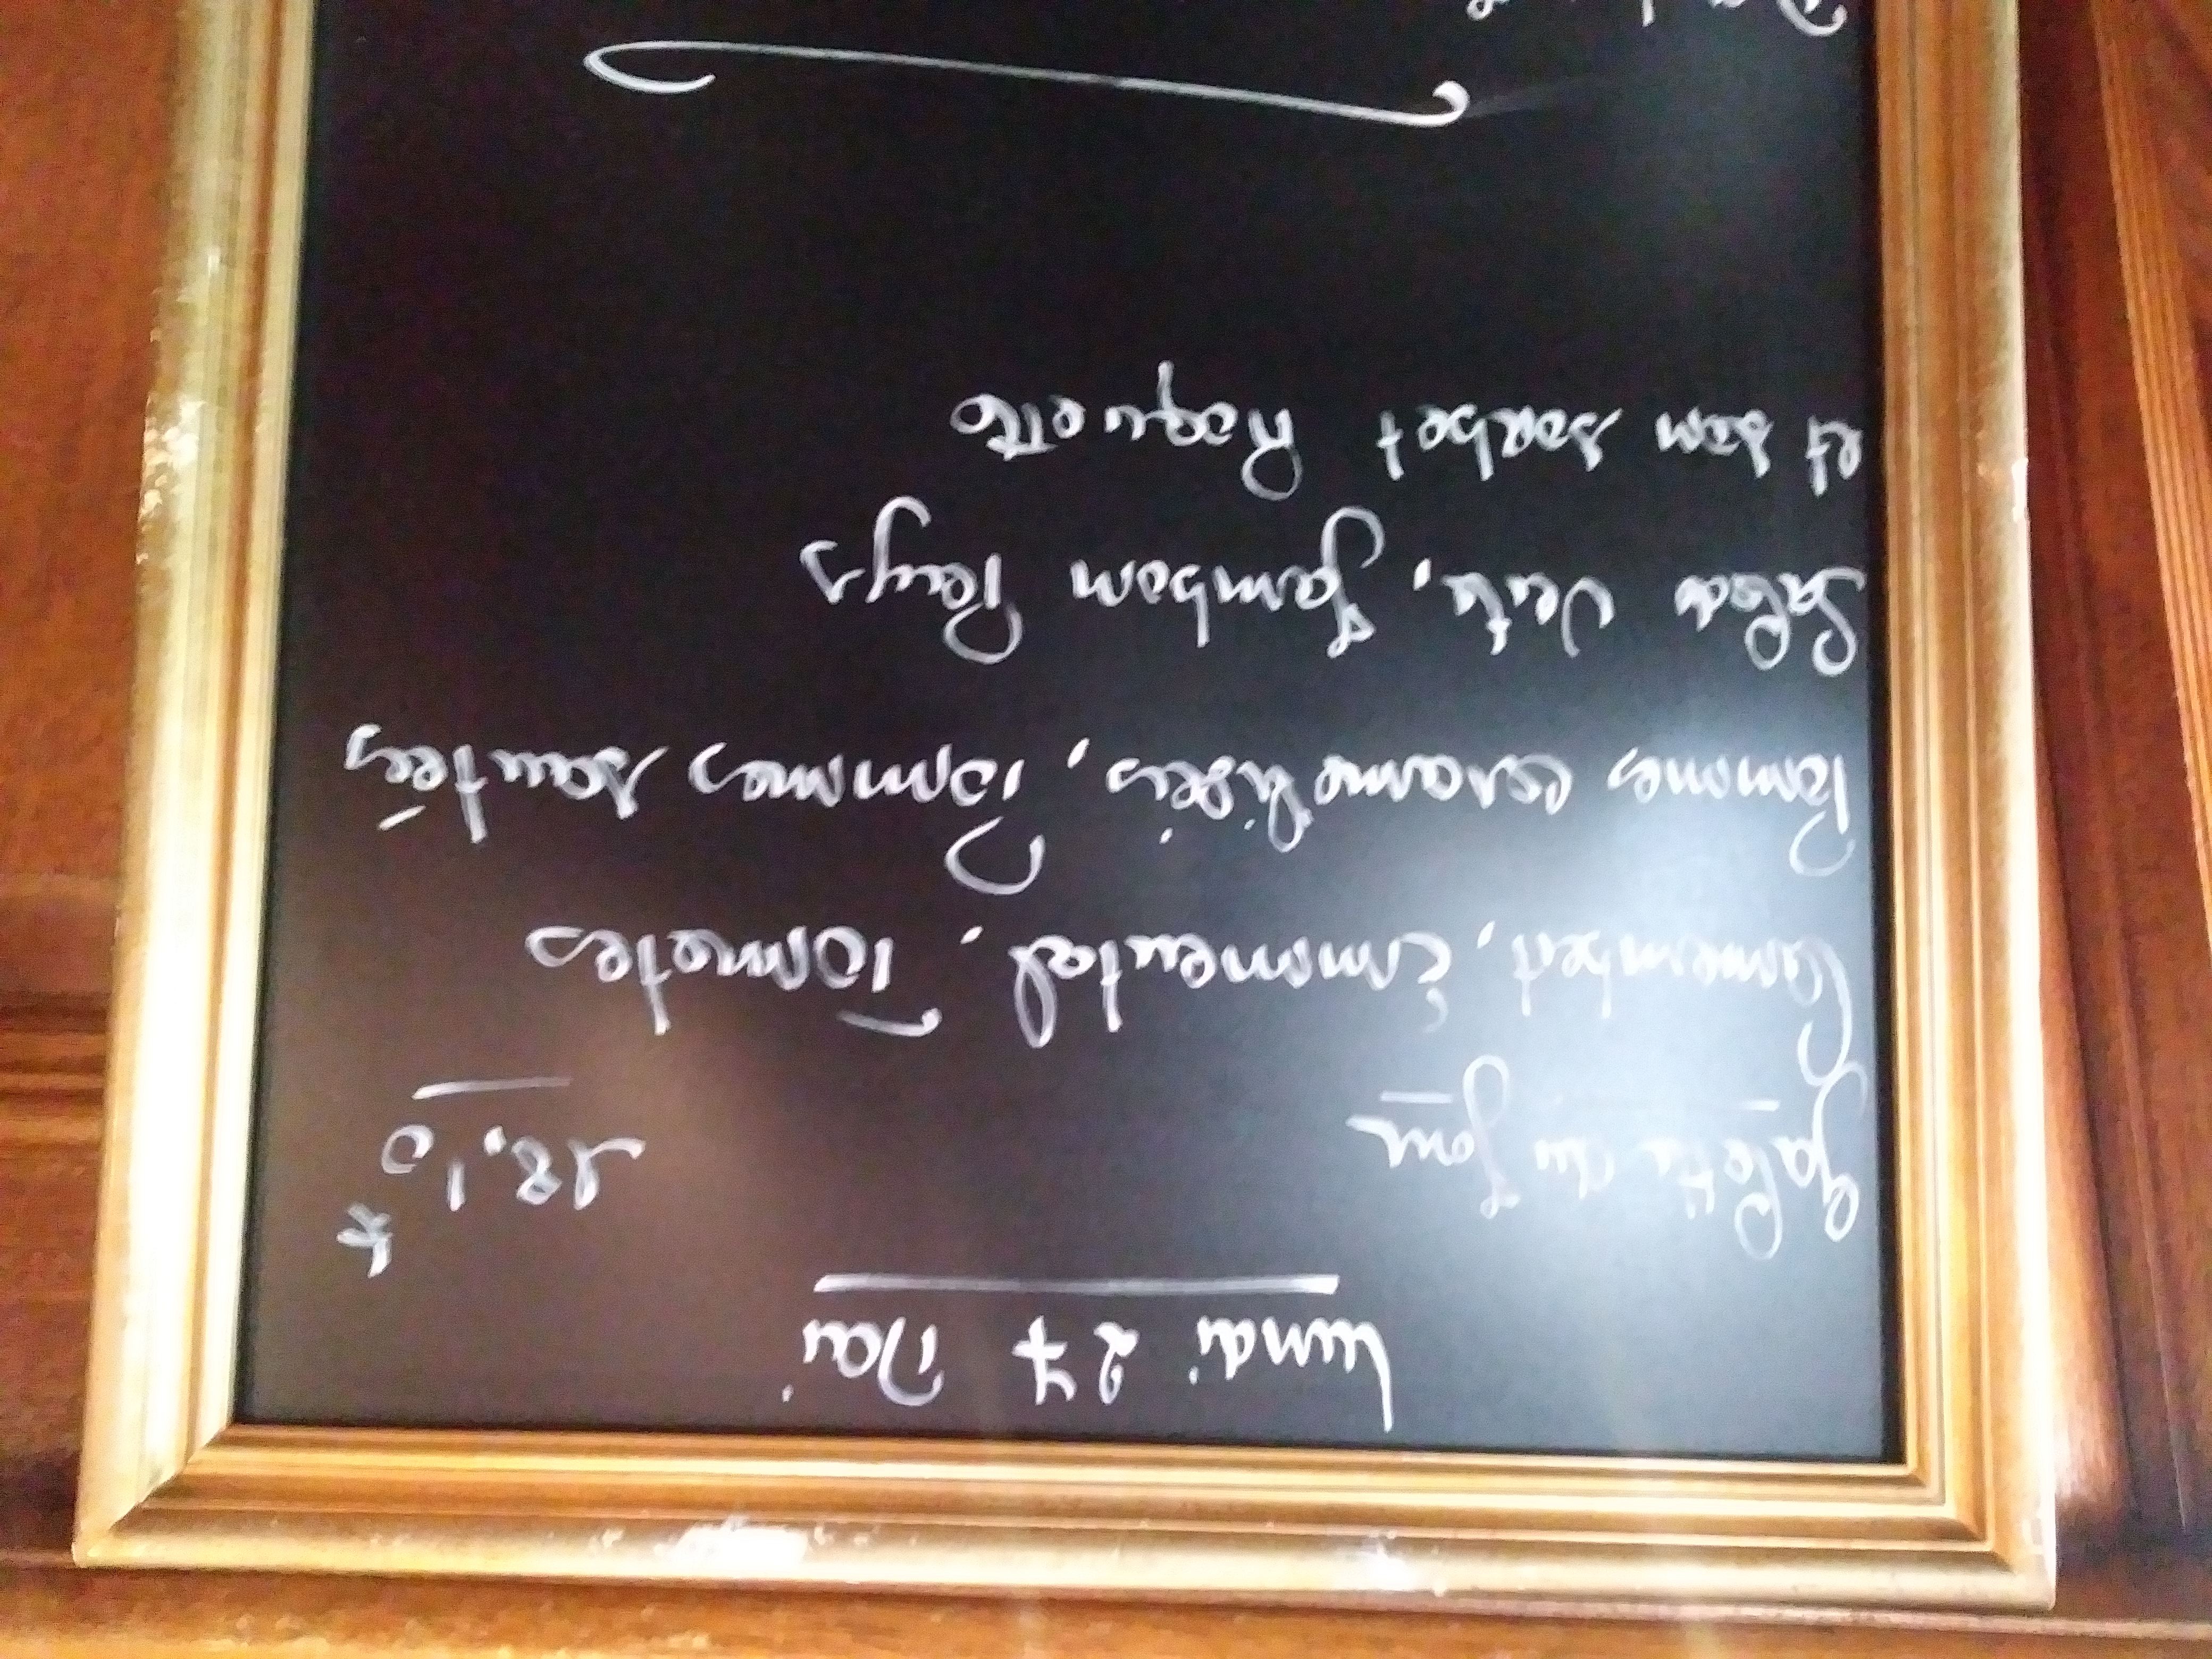 Lundi 27 Mai
Galette du Jour 18,10
Camembert, Emmental, Tomates
Pommes caramélisées, Pommes sautées
Salade Verte, Jambon Pays
et son sorbet Roquette